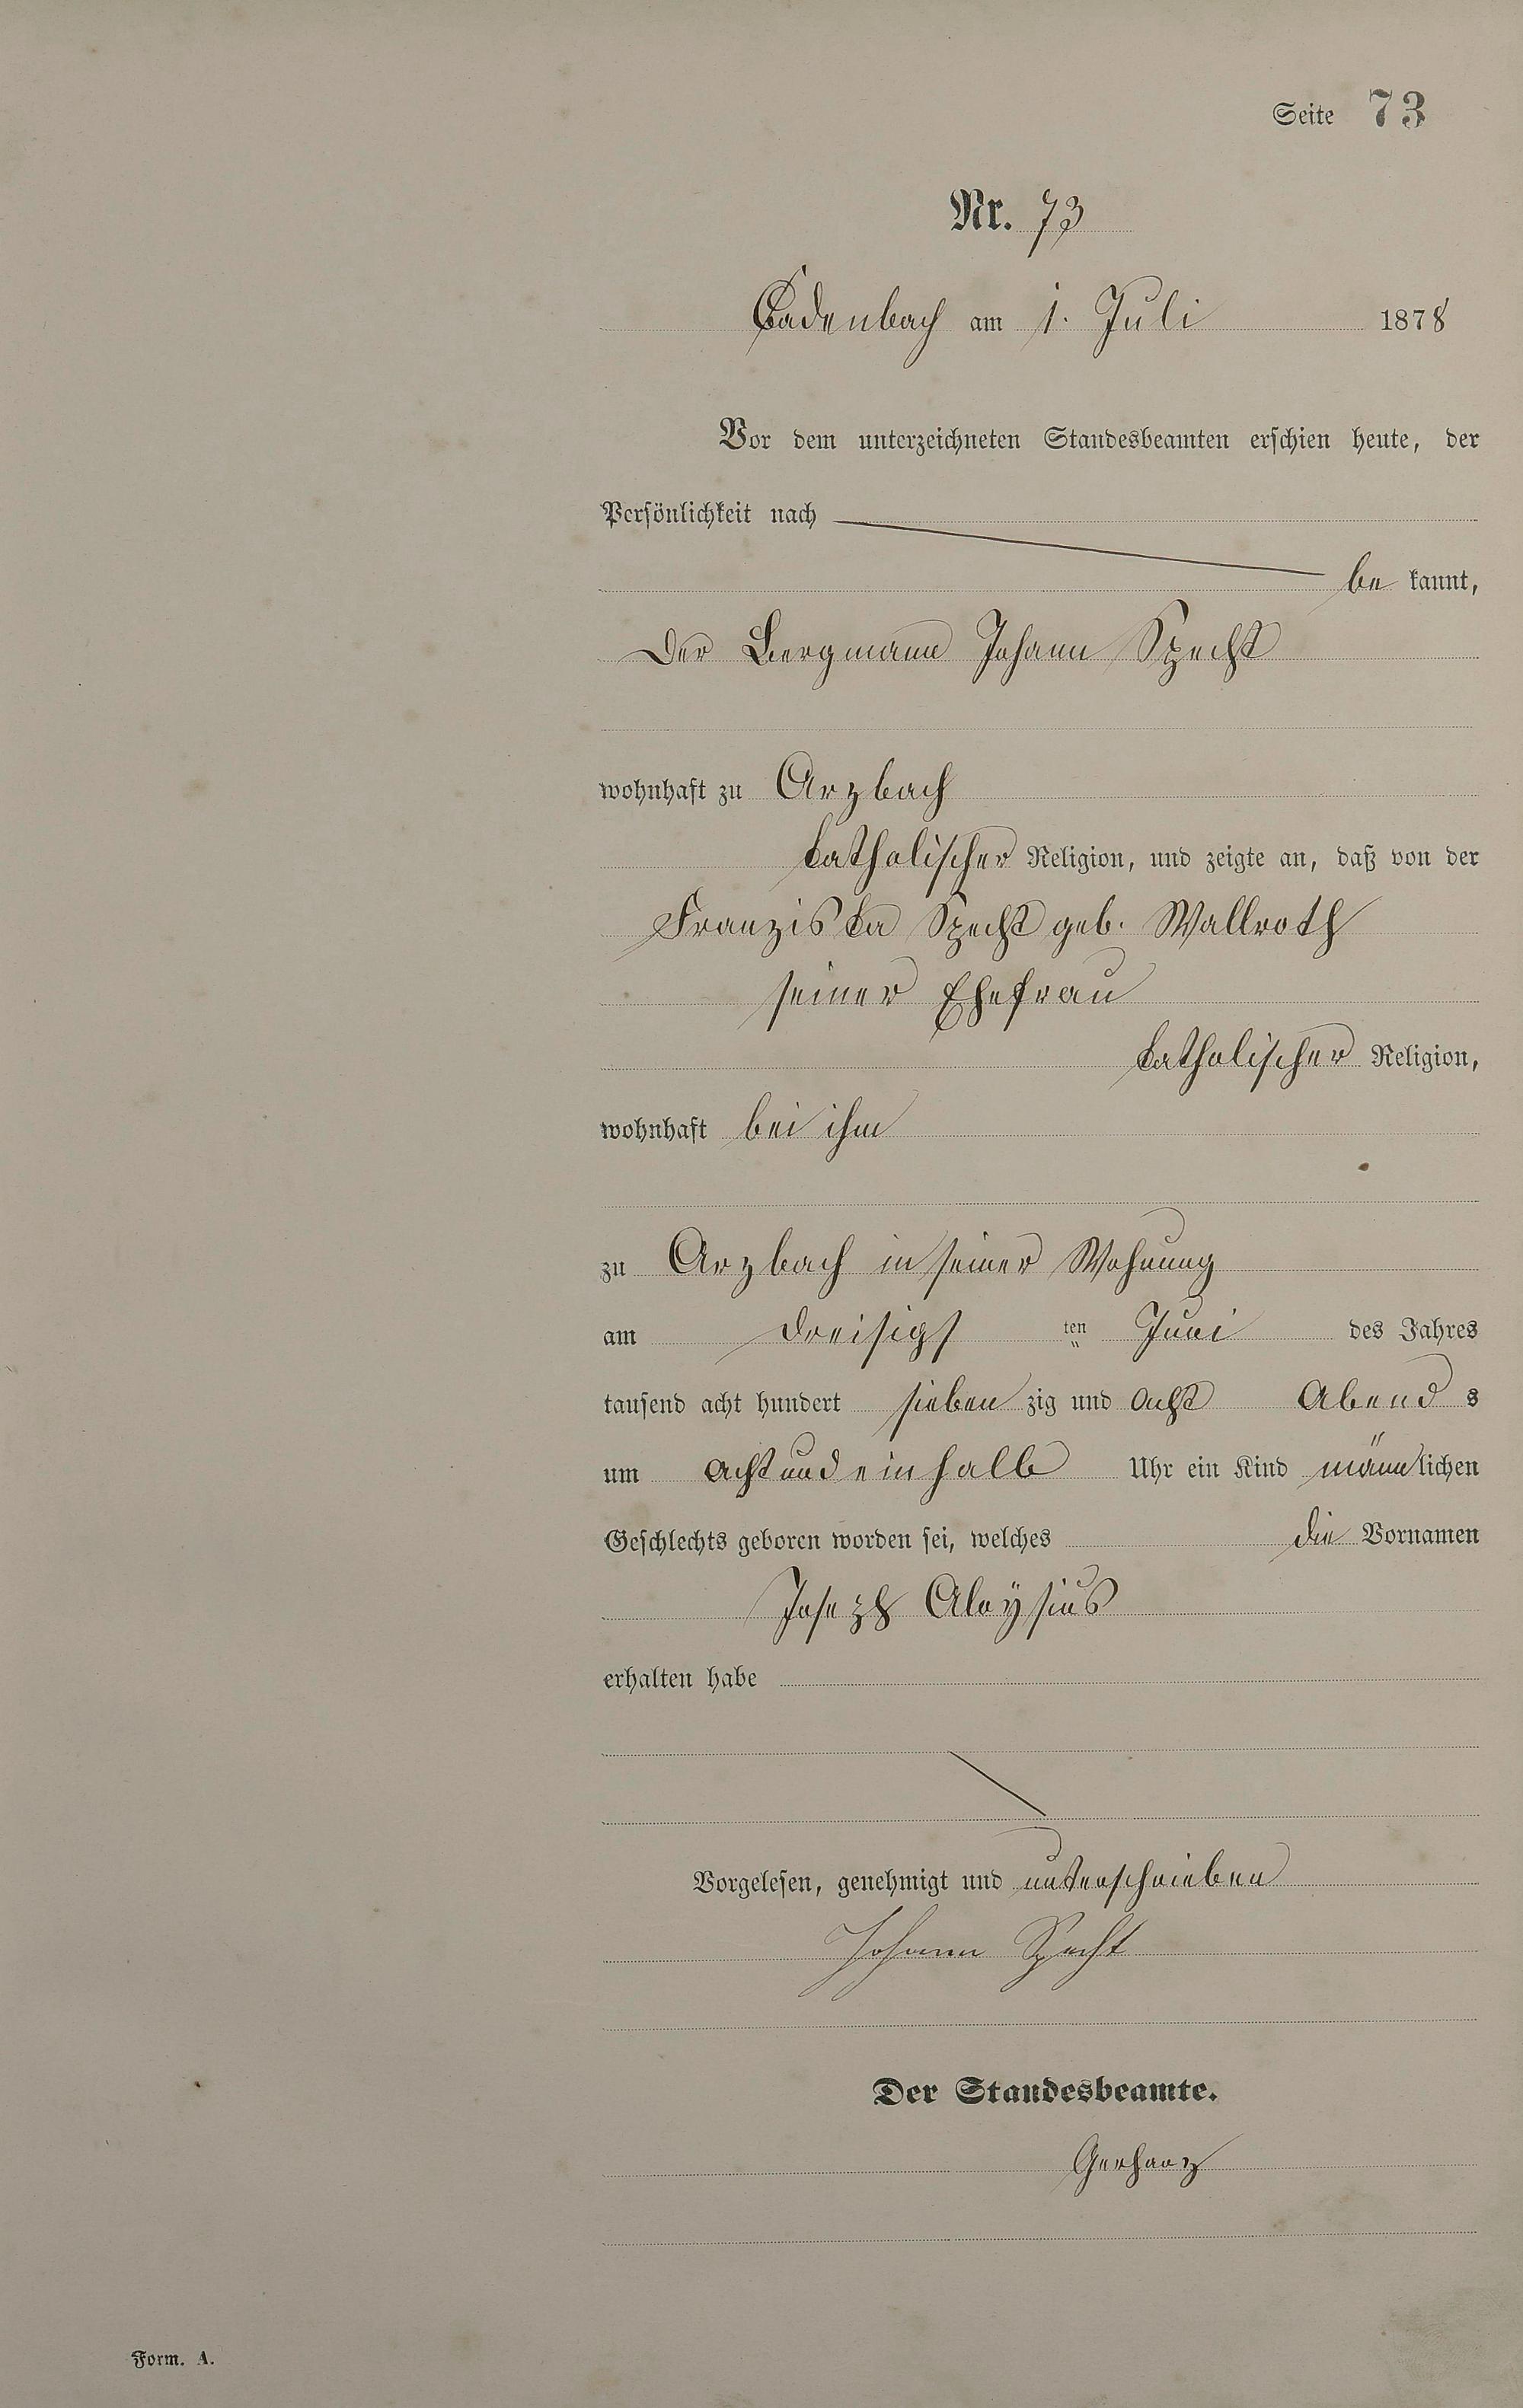 Seite 73
Nr. 73
Cadenbach am 1. Juli 1878
Vor dem unterzeichneten Standesbeamten erschien heute, der
Persönlichkeit nach
be kannt,
Der Bergmann Johann Specht
wohnhaft zu Arzbach
katholischer Religion, und zeigte an, daß von der
Franziska Specht geb. Wallroth
seiner Ehefrau
katholischer Religion,
wohnhaft bei ihm
zu Arzbach in seiner Wohnung
am dreisigs ten Juni des Jahres
tausend acht hundert sieben zig und acht Abend s
um acht und ein halb Uhr ein Kind männlichen
Geschlechts geboren worden sei, welches die Vornamen
Joseph Aloÿsius
erhalten habe
Vorgelesen, genehmigt und unterschrieben
Johann Specht
Der Standesbeamte.
Gerharz
Form. A.